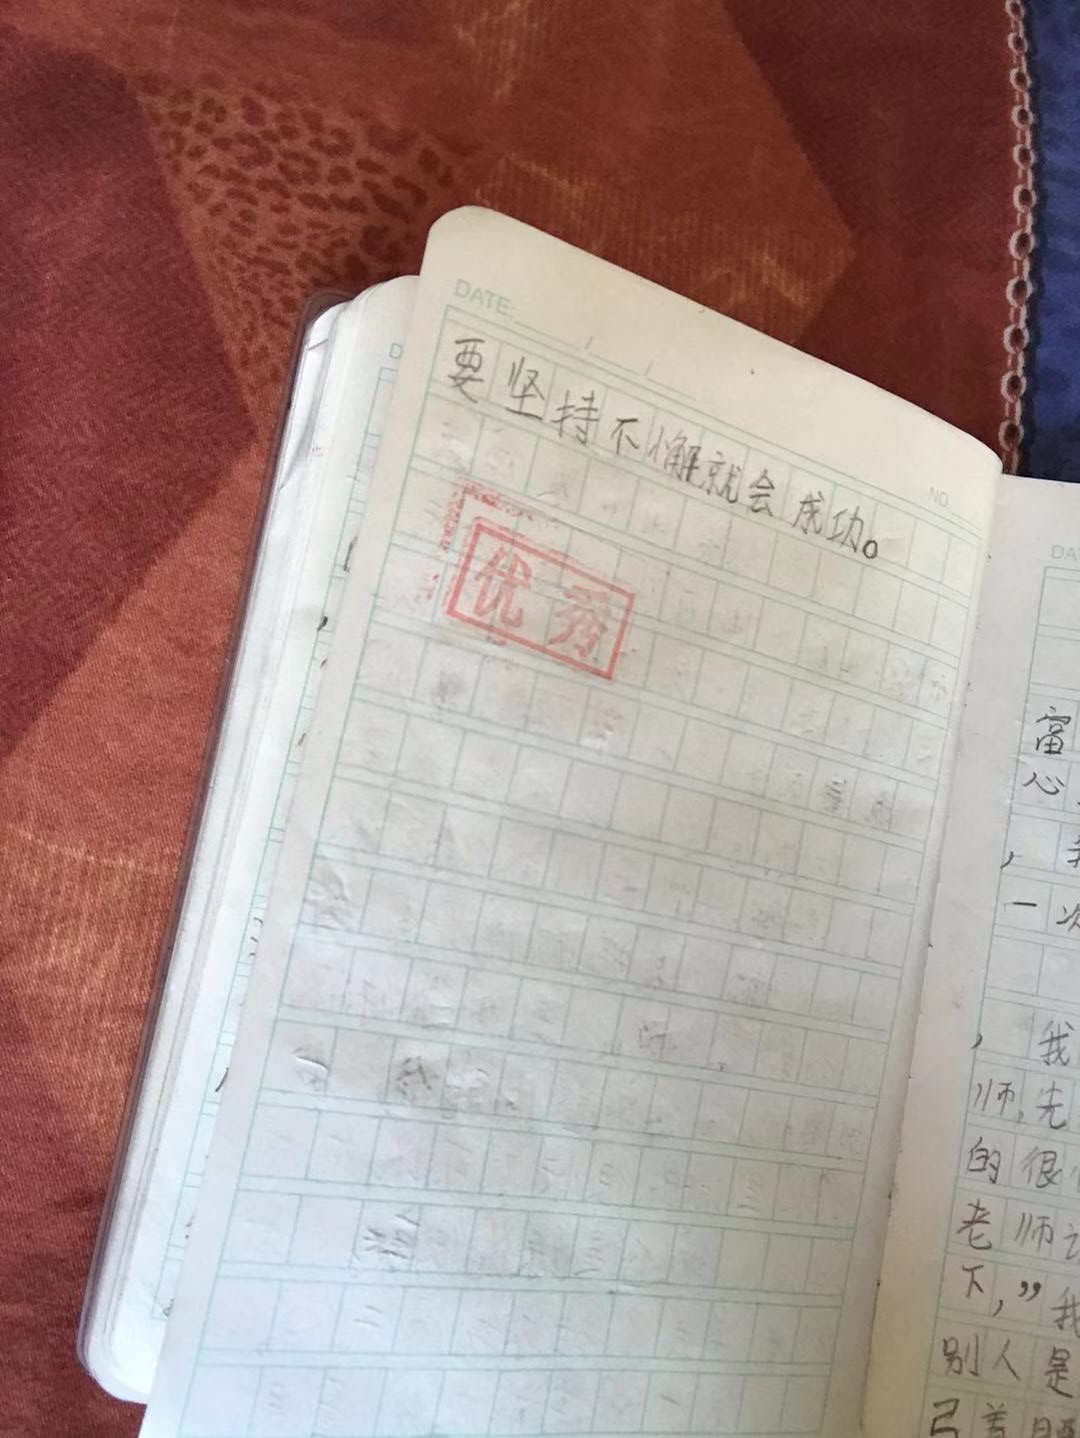 DATE:
NO
要坚持不懈就会成功。
优秀
DA
富
心
，
一次
，我
师，先
的很
老师
下，”我
别人是
己着